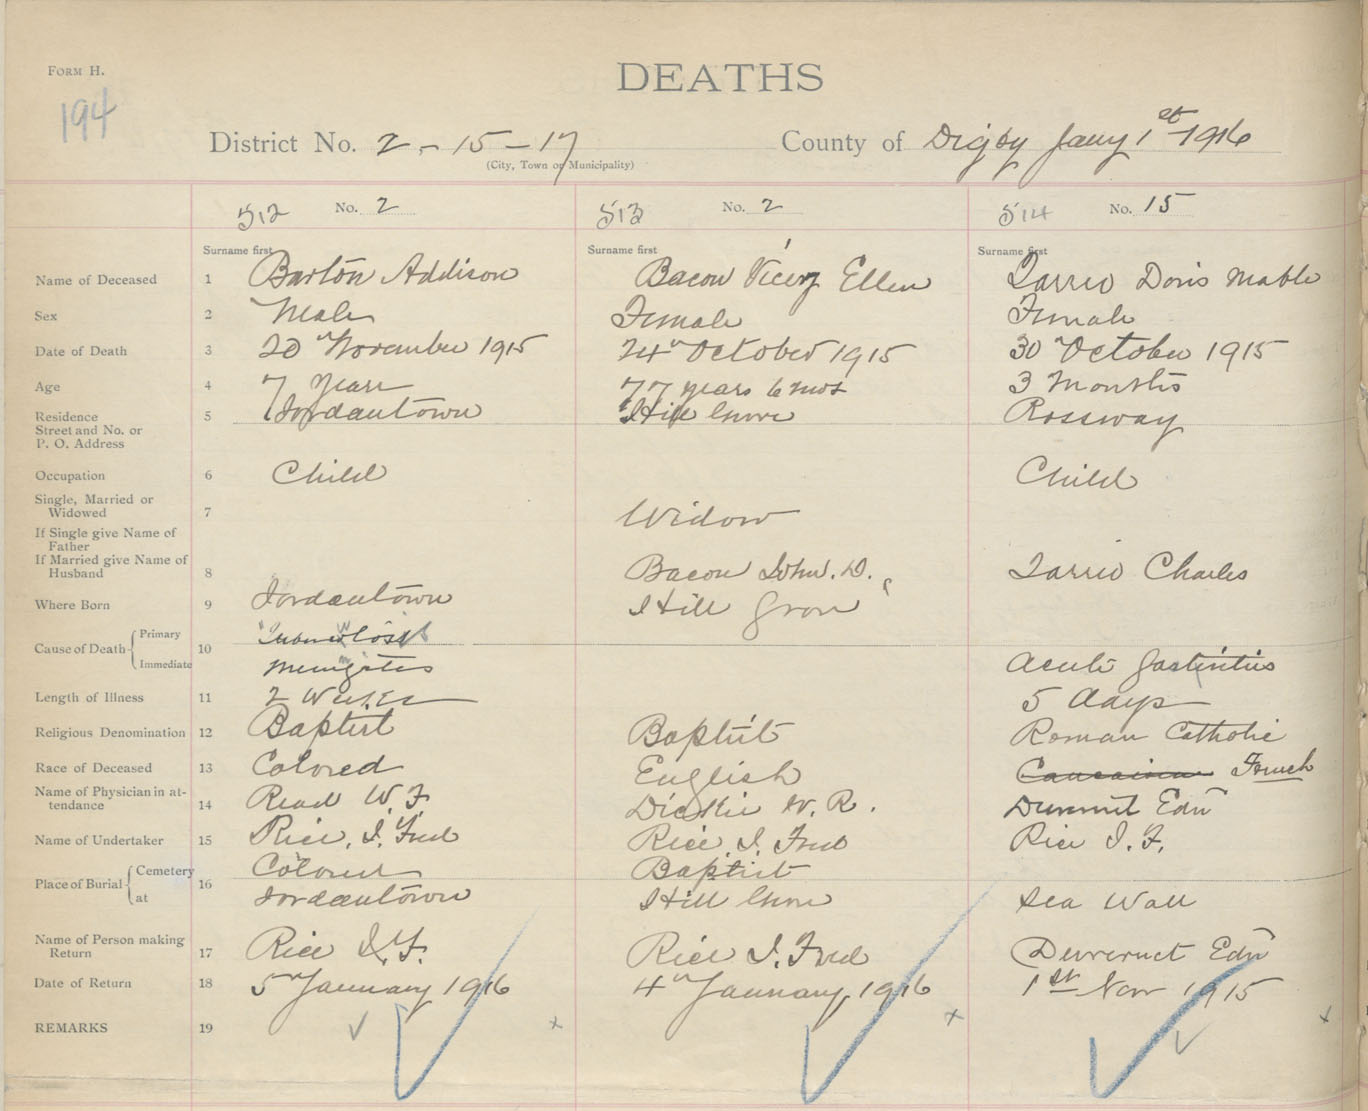 FORM H.
DEATHS
194
District No. 2 - 15 - 17
County of Digby Jany 1st 1916
(City, Town or Municipality)
512 No. 2
513 No. 2
514 No. 15
Surname first
Surname first
Surname first
Name of Deceased 1 Barton Addison
Bacon Ellen
Doris Mable
Sex 2 Male
Female
Female
Date of Death 3 20" November 1915
24" October 1915
30" October 1915
Age 4 7 Years
77 years 6 mos
3 Months
Residence
Street and No. or
P. O. Address
5 Jordantown
Hill Grove
Rossway
Occupation 6 Child
Child
Single, Married or
Widowed
7
Widow
If Single give Name of
Father
If Married give Name of
Husband
8
Bacon John. D.
Charles
Where Born 9 Jordantown
Hill Grove
Cause of Death Primary
Immediate
10
Meningites
Acute
Length of Illness 11 2 Weeks
5 days
Religious Denomination 12 Baptist
Baptist
Roman Catholic
Race of Deceased 13 Colored
English
French
Name of Physician in at-
tendance
14 Read W. F.
Dickie W. R.
Edn
Name of Undertaker 15 Rice, I. Fred
Rice, I. Fred
Rice I. F.
Place of Burial Cemetery
at
16 Colored
Jordantown
Baptist
Hill Grove
Sea Wall
Name of Person making
Return
17 Rice I. F.
Rice I. Fred
Edn
Date of Return 18 5" January 1916
4" January 1916
1st Nov 1915
REMARKS 19